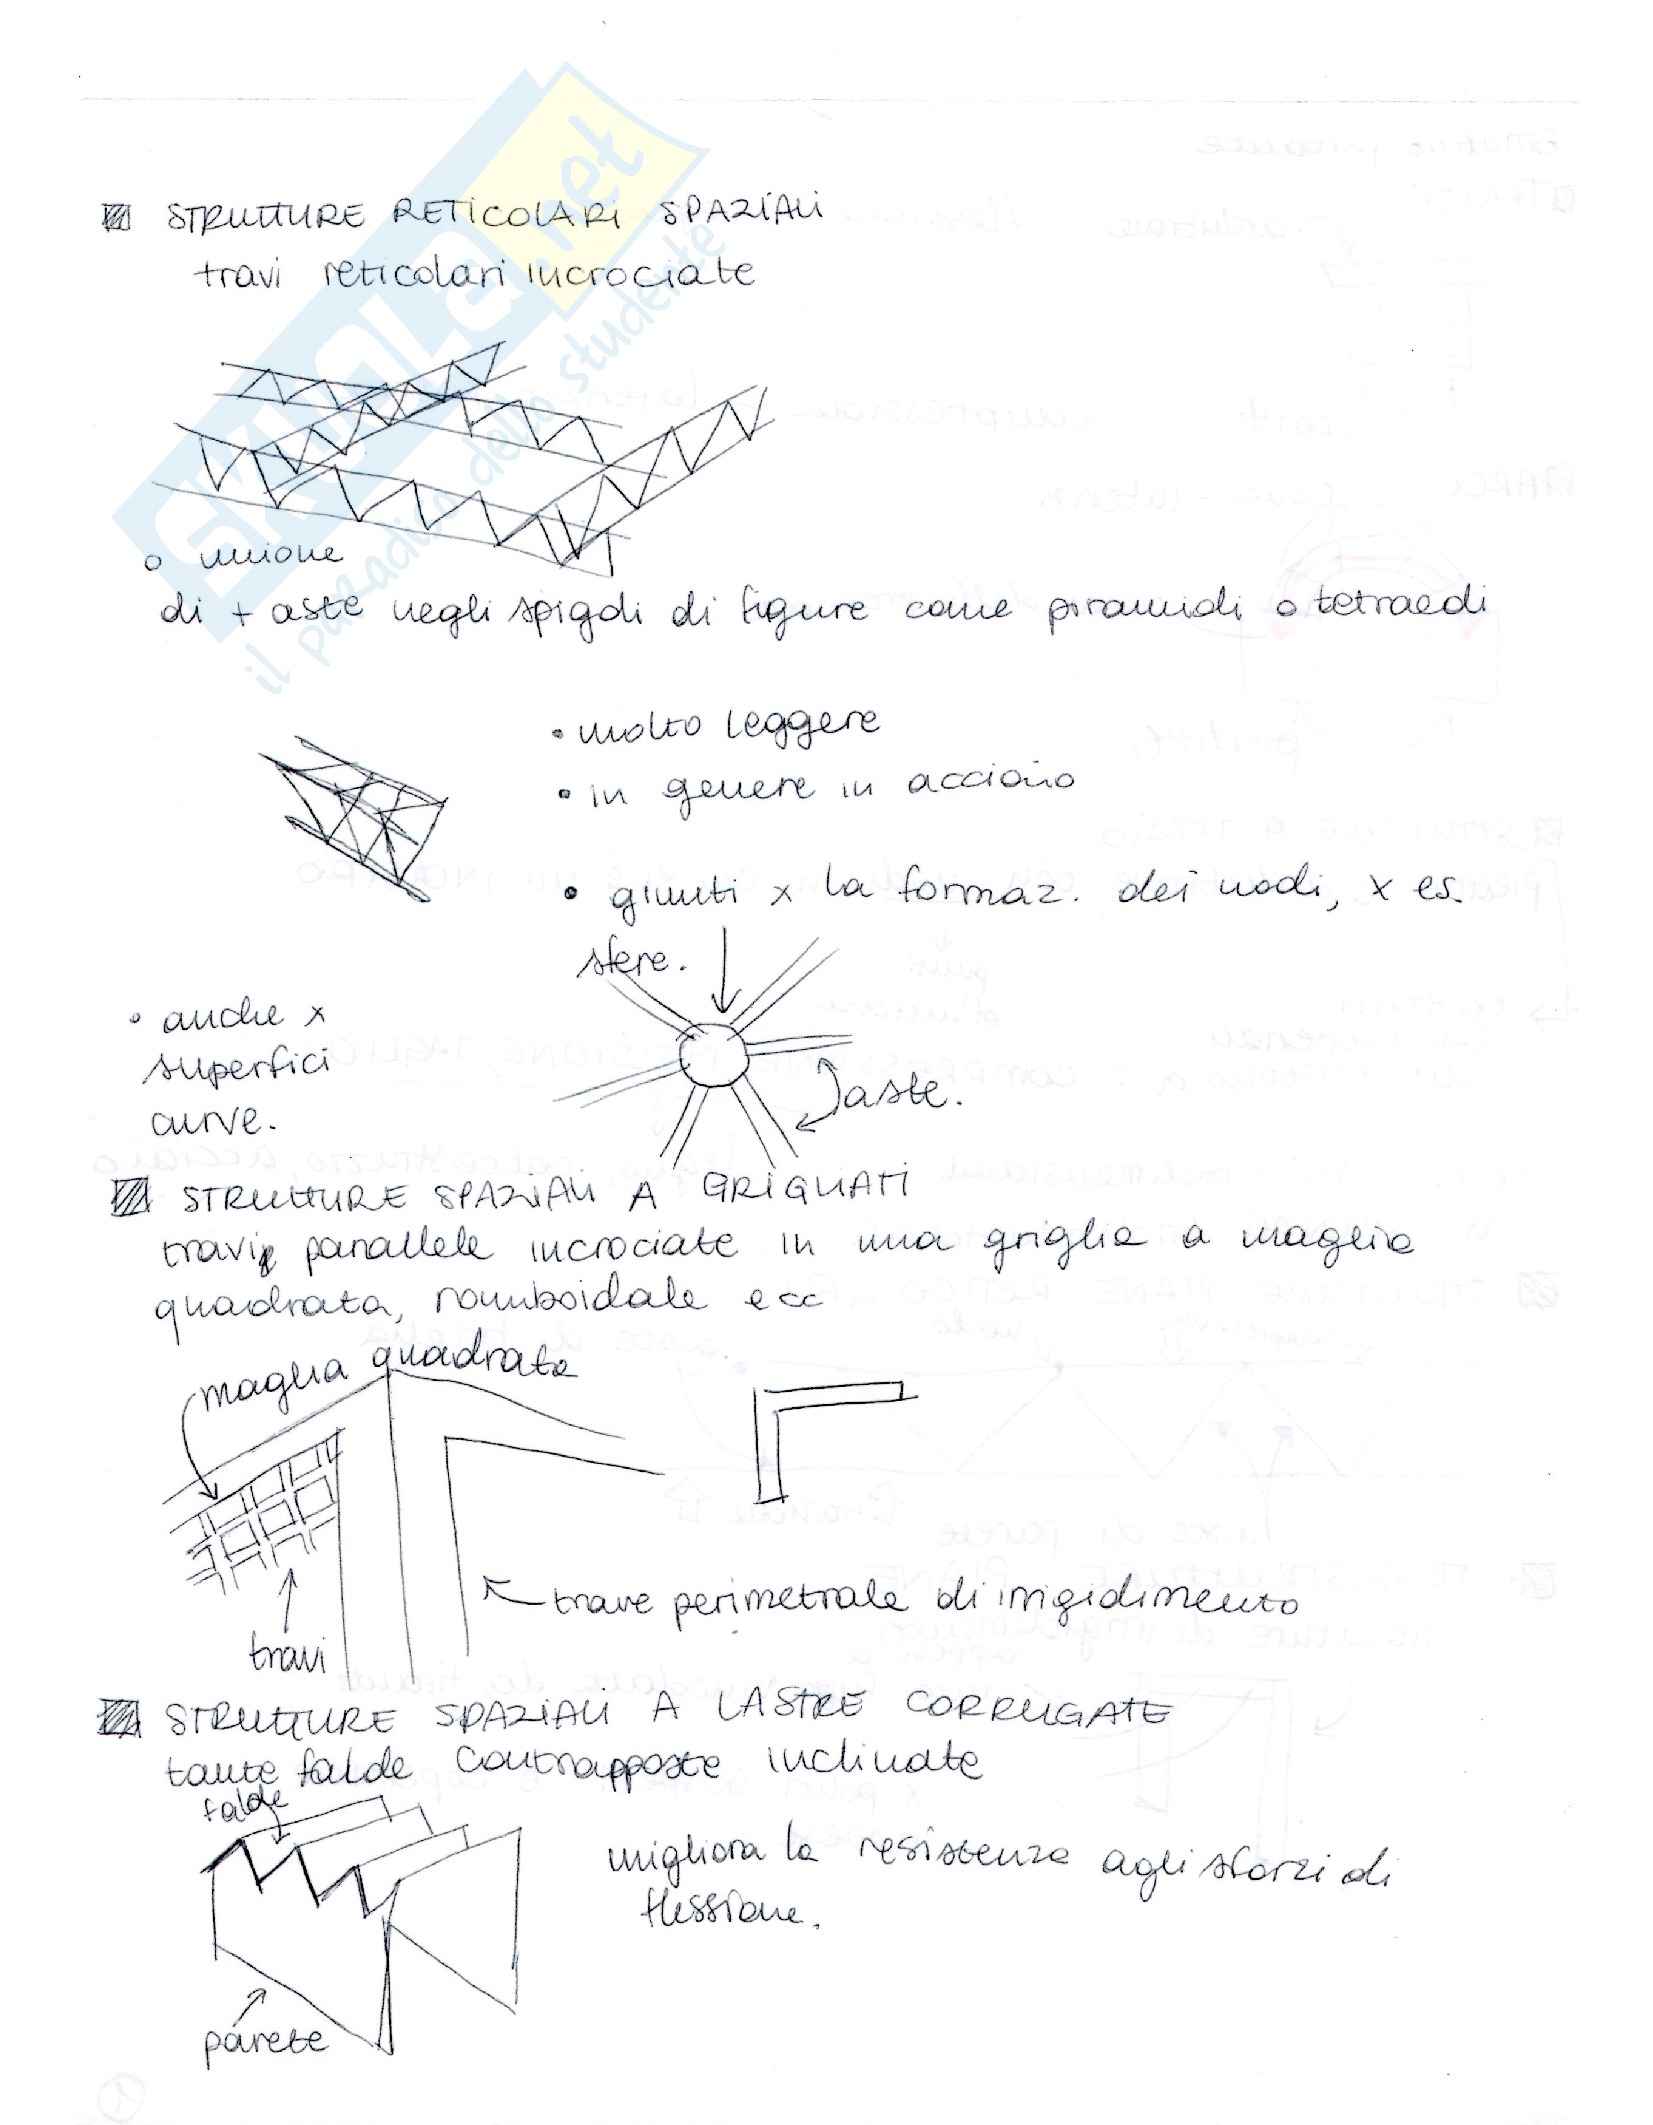 STRUTTURE RETICOLARI SPAZIALI
travi reticolari incrociate
o unione
di + aste negli spigoli di figure come piramidi o tetraedi
• molto leggere
• in genere in acciaio
• giunti x la formaz. dei nodi, x es.
sfere.
• anche x
superfici
curve.
aste.
STRUTTURE SPAZIALI A GRIGLIATI
travi parallele incrociate in una griglia a maglia
quadrata, romboidale ecc
maglia quadrata
trave perimetrale di irrigidimento
travi
STRUTTURE SPAZIALI A LASTRE CORRUGATE
tante falde contrapposte inclinate
falde
migliora la resistenza agli sforzi di
flessione.
parete
SKUOLA.net
il paradiso dello studente